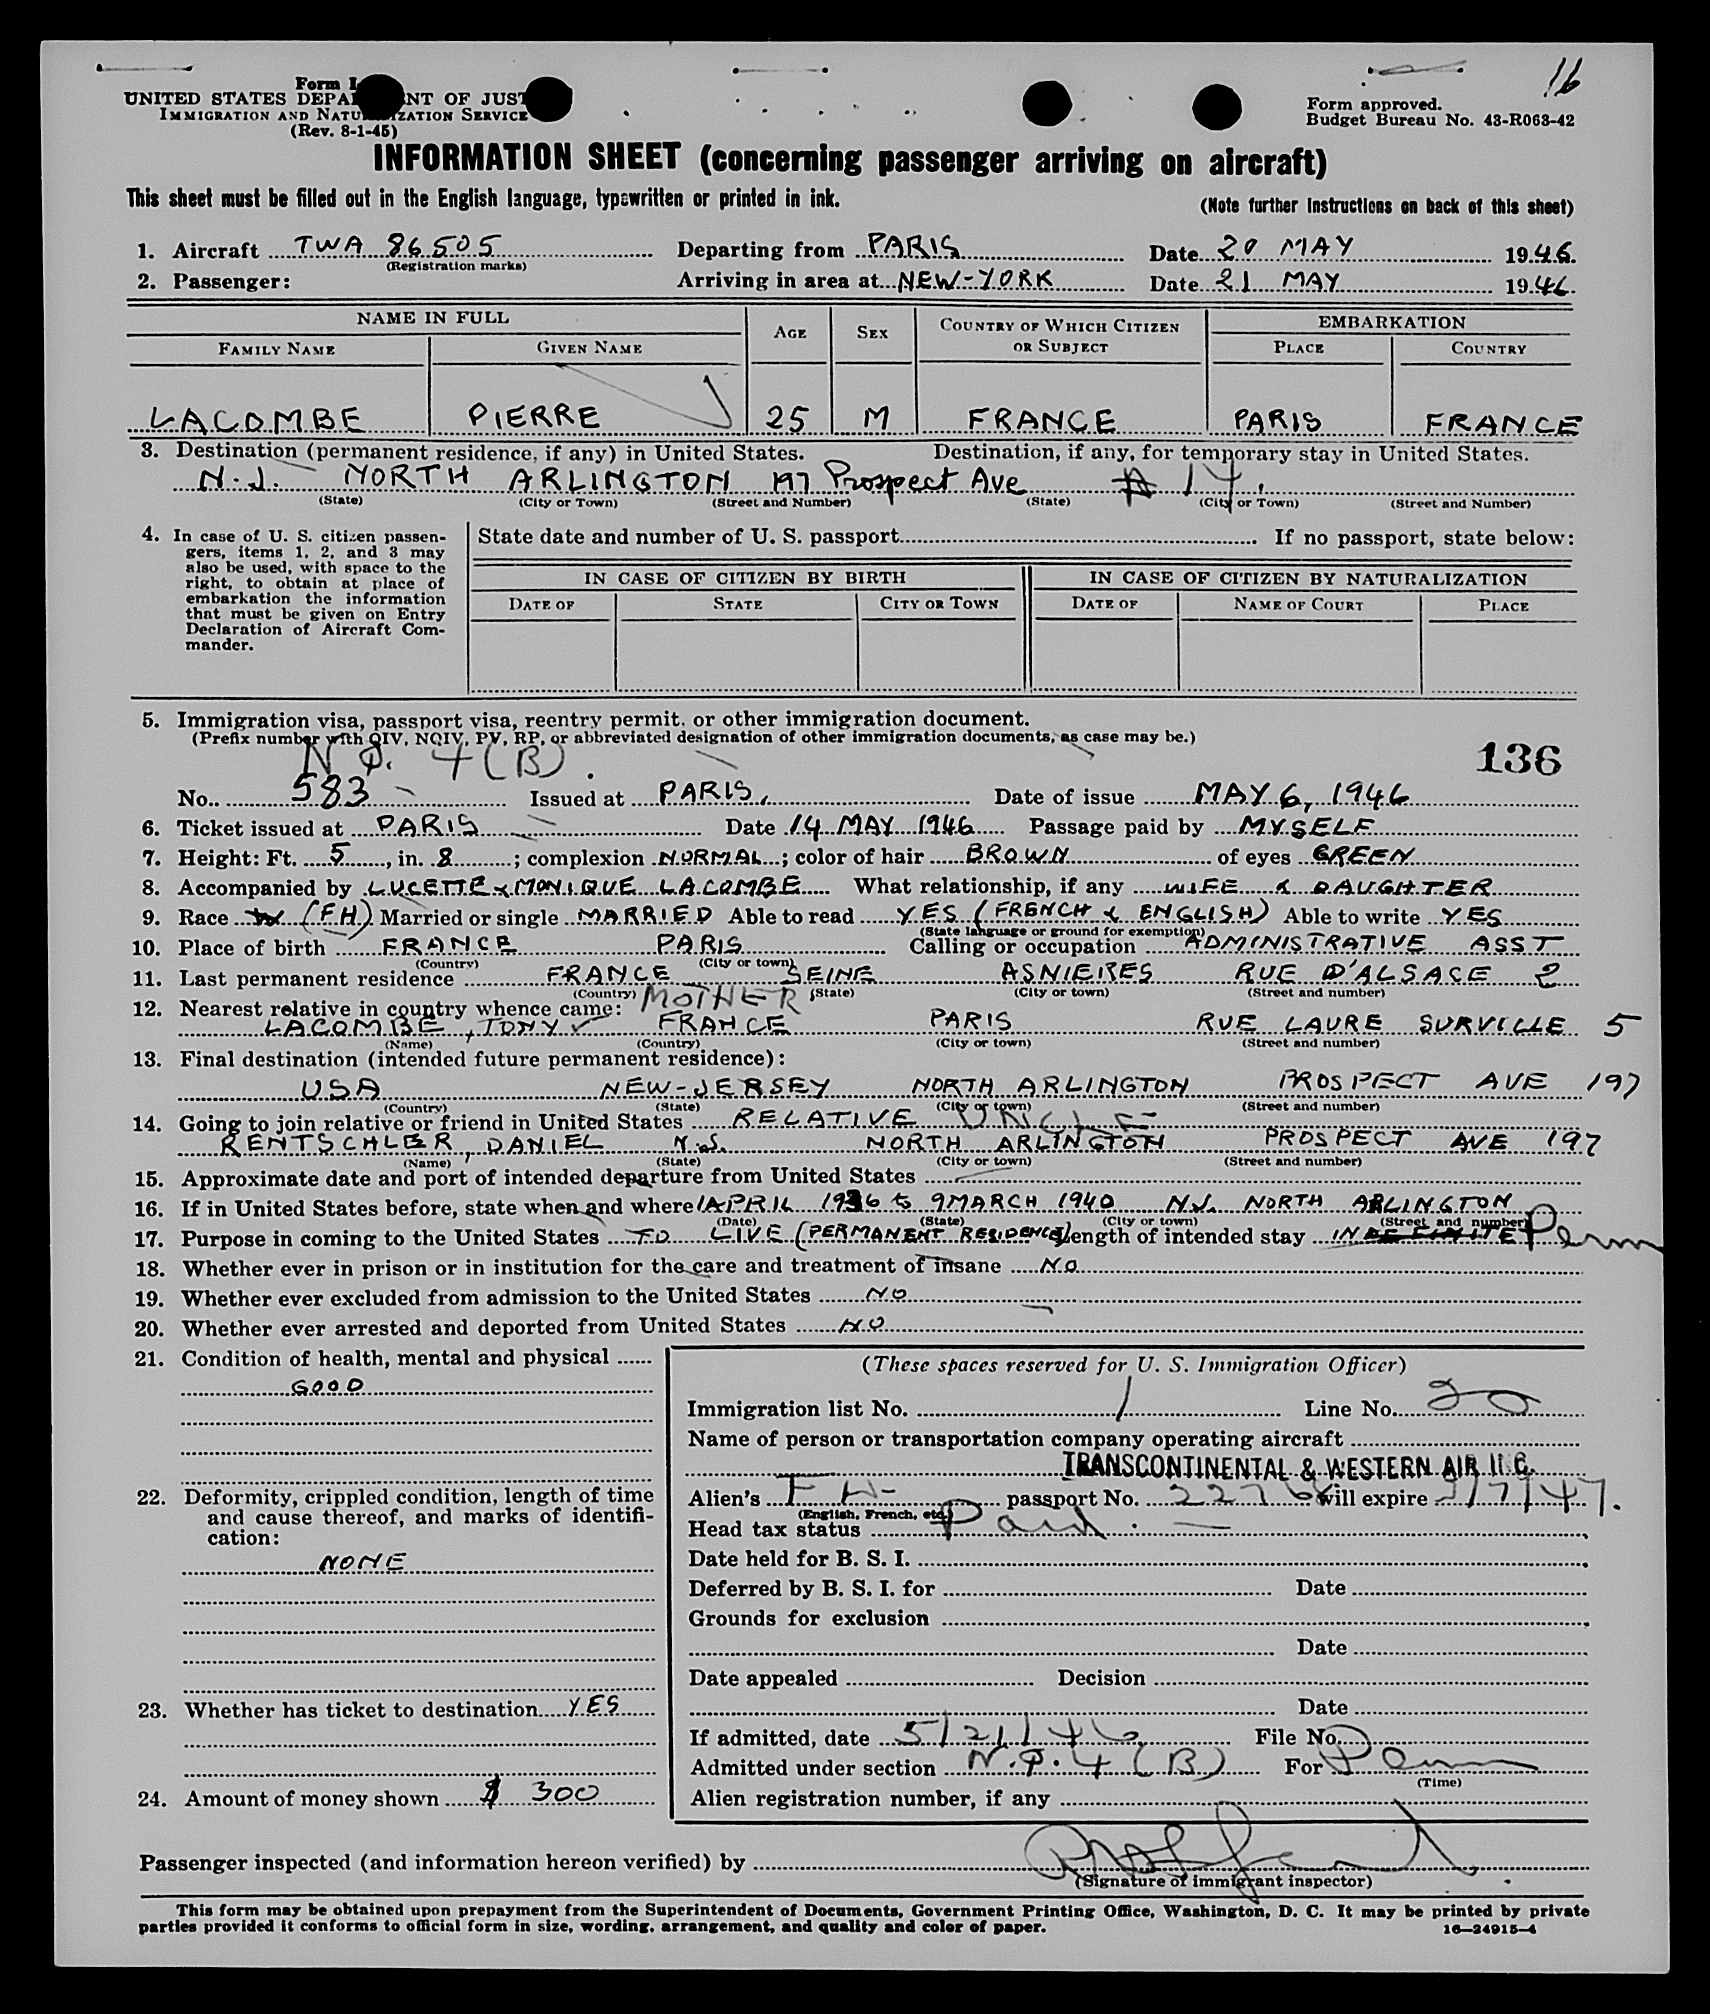 16
Form I
UNITED STATES DEPA NT OF JUST
IMMIGRATION AND NATU IZATION SERVICE
(Rev. 8-1-45)
Form approved.
Budget Bureau No. 43-R063-42
INFORMATION SHEET (concerning passenger arriving on aircraft)
This sheet must be filled out in the English language, typewritten or printed in ink.
(Note further instructions on back of this sheet)
1. Aircraft TWA 86505 Departing from PARIS Date 20 MAY 1946.
(Registration marks)
2. Passenger: Arriving in area at NEW-YORK Date 21 MAY 1946.
NAME IN FULL AGE SEX COUNTRY OF WHICH CITIZEN OR SUBJECT EMBARKATION
FAMILY NAME GIVEN NAME PLACE COUNTRY
LACOMBE PIERRE 25 M FRANCE PARIS FRANCE
3. Destination (permanent residence, if any) in United States. Destination, if any, for temporary stay in United States.
N.J. NORTH ARLINGTON 197 Prospect Ave # 14.
(State) (City or Town) (Street and Number) (State) (City or Town) (Street and Number)
4. In case of U. S. citizen passen-
gers, items 1, 2, and 3 may
also be used, with space to the
right, to obtain at place of
embarkation the information
that must be given on Entry
Declaration of Aircraft Com-
mander.
State date and number of U. S. passport If no passport, state below:
IN CASE OF CITIZEN BY BIRTH IN CASE OF CITIZEN BY NATURALIZATION
DATE OF STATE CITY OR TOWN DATE OF NAME OF COURT PLACE
5. Immigration visa, passport visa, reentry permit, or other immigration document.
(Prefix number with QIV, NQIV, PV, RP, or abbreviated designation of other immigration documents, as case may be.)
N Q. 4 (B). 136
No. 583 Issued at PARIS, Date of issue MAY 6, 1946
6. Ticket issued at PARIS Date 14 MAY 1946 Passage paid by MYSELF
7. Height: Ft. 5, in. 8; complexion NORMAL; color of hair BROWN of eyes GREEN
8. Accompanied by LUCETTE & MONIQUE LACOMBE What relationship, if any WIFE & DAUGHTER
9. Race (FH) Married or single MARRIED Able to read YES (FRENCH & ENGLISH) Able to write YES
(State language or ground for exemption)
10. Place of birth FRANCE PARIS Calling or occupation ADMINISTRATIVE ASST
(Country) (City or town)
11. Last permanent residence FRANCE SEINE ASNIERES RUE D'ALSACE 2
(Country) (State) (City or town) (Street and number)
12. Nearest relative in country whence came: MOTHER
LACOMBE, TONY FRANCE PARIS RUE LAURE SURVILLE 5
(Name) (Country) (City or town) (Street and number)
13. Final destination (intended future permanent residence):
USA NEW-JERSEY NORTH ARLINGTON PROSPECT AVE 197
(Country) (State) (City or town) (Street and number)
14. Going to join relative or friend in United States RELATIVE UNCLE
RENTSCHLER, DANIEL N.J. NORTH ARLINGTON PROSPECT AVE 197
(Name) (State) (City or town) (Street and number)
15. Approximate date and port of intended departure from United States
16. If in United States before, state when and where 1 APRIL 1936 to 9 MARCH 1940 N.J. NORTH ARLINGTON
(Date) (State) (City or town) (Street and number)
17. Purpose in coming to the United States TO LIVE (PERMANENT RESIDENCE) Length of intended stay INDEFINITE Perm
18. Whether ever in prison or in institution for the care and treatment of insane NO
19. Whether ever excluded from admission to the United States NO
20. Whether ever arrested and deported from United States NO
21. Condition of health, mental and physical
GOOD
22. Deformity, crippled condition, length of time
and cause thereof, and marks of identifi-
cation:
NONE
23. Whether has ticket to destination YES
24. Amount of money shown $ 300
(These spaces reserved for U. S. Immigration Officer)
Immigration list No. 1 Line No. 20
Name of person or transportation company operating aircraft
TRANSCONTINENTAL & WESTERN AIR
Alien's FH passport No. will expire
(English, French, etc.)
Head tax status Paid.
Date held for B. S. I.
Deferred by B. S. I. for Date
Grounds for exclusion
Date
Date appealed Decision
Date
If admitted, date 5/21/46 File No.
Admitted under section N.Q. 4 (B) For Perm
(Time)
Alien registration number, if any
Passenger inspected (and information hereon verified) by
(Signature of immigrant inspector)
This form may be obtained upon prepayment from the Superintendent of Documents, Government Printing Office, Washington, D. C. It may be printed by private
parties provided it conforms to official form in size, wording, arrangement, and quality and color of paper.
16—24915-4